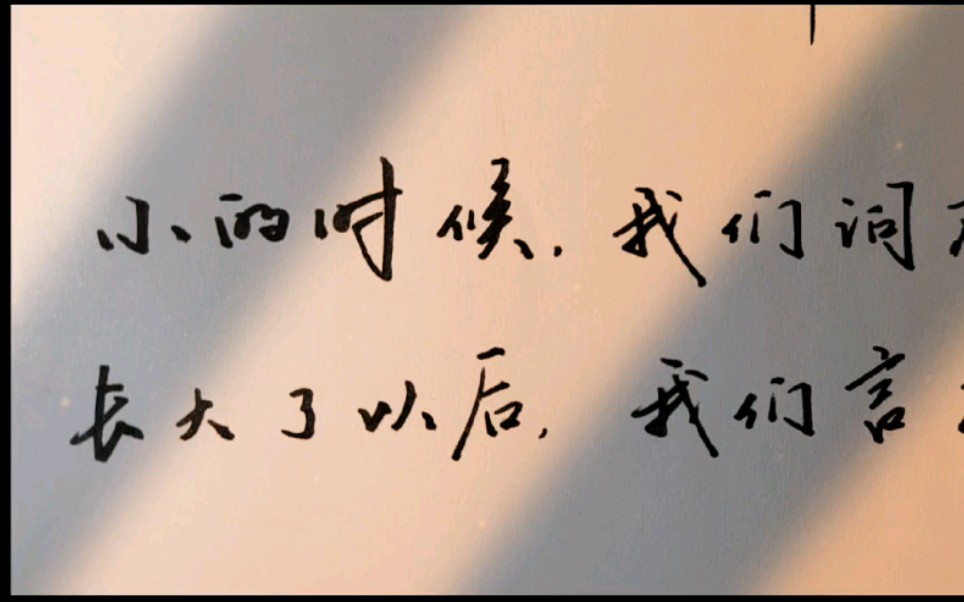 小的时候，我们词
长大了以后，我们言